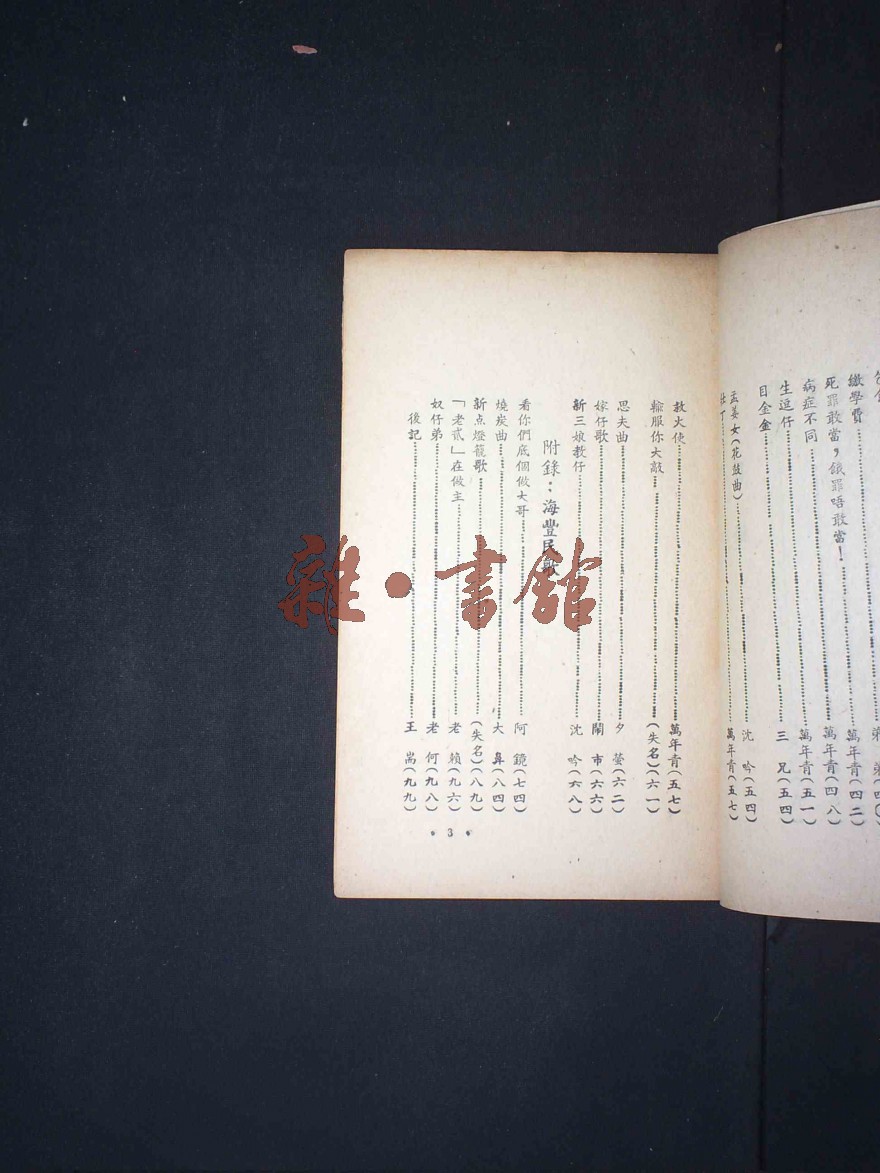 繳學費……萬年青(四二)
死罪敢當,餓罪唔敢當!……萬年青(四八)
病症不同……萬年青(五一)
生逗仔……三兄(五四)
目金金……沈吟(五四)
孟姜女(花鼓曲)……萬年青(五七)
救火使……萬年青(五七)
輸服你大敲……(失名)(六一)
思夫曲……夕螢(六二)
嫁仔歌……鬧市(六六)
新三娘教仔……沈吟(六八)
附錄:海豐民歌
看你們底個做大哥……阿鏡(七四)
燒炭曲……大鼻(八四)
新点燈籠歌……(失名)(八九)
「老貳」在做主……老賴(九六)
奴仔弟……老何(九八)
後記……王耑(九九)
• 3 •
雜·書館